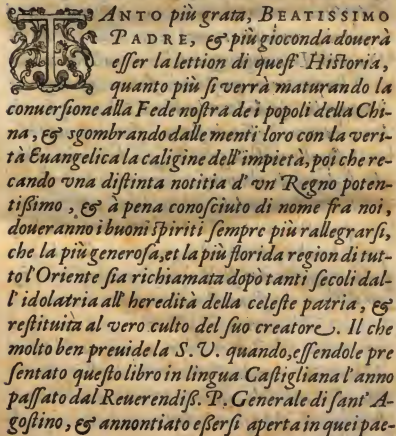 TANTO più grata, BEATISSIMO
PADRE, & più gioconda douerà
eſſer la lettion di queſt' Hiſtoria,
quanto più ſi verrà maturando la
conuerſione alla Fede noſtra de i popoli della Chi-
na, & sgombrando dalle menti loro con la veri-
tà Euangelica la caligine dell'impietà, poi che re-
cando vna diſtinta notitia d'vn Regno poten-
tiſsimo, & à pena conoſciuto di nome fra noi,
doueranno i buoni ſpiriti ſempre più rallegrarſi,
che la più generoſa, et la più florida region di tut-
to l'Oriente ſia richiamata dopò tanti ſecoli dal-
l'idolatria all'heredità della celeſte patria, &
reſtituita al vero culto del ſuo creatore. Il che
molto ben preuide la S. V. quando, eſſendole pre
ſentato queſto libro in lingua Caſtigliana l'anno
paſſato dal Reuerendiſſ. P. Generale di ſant' A-
goſtino, & annontiato eſſerſi aperta in quei pae-